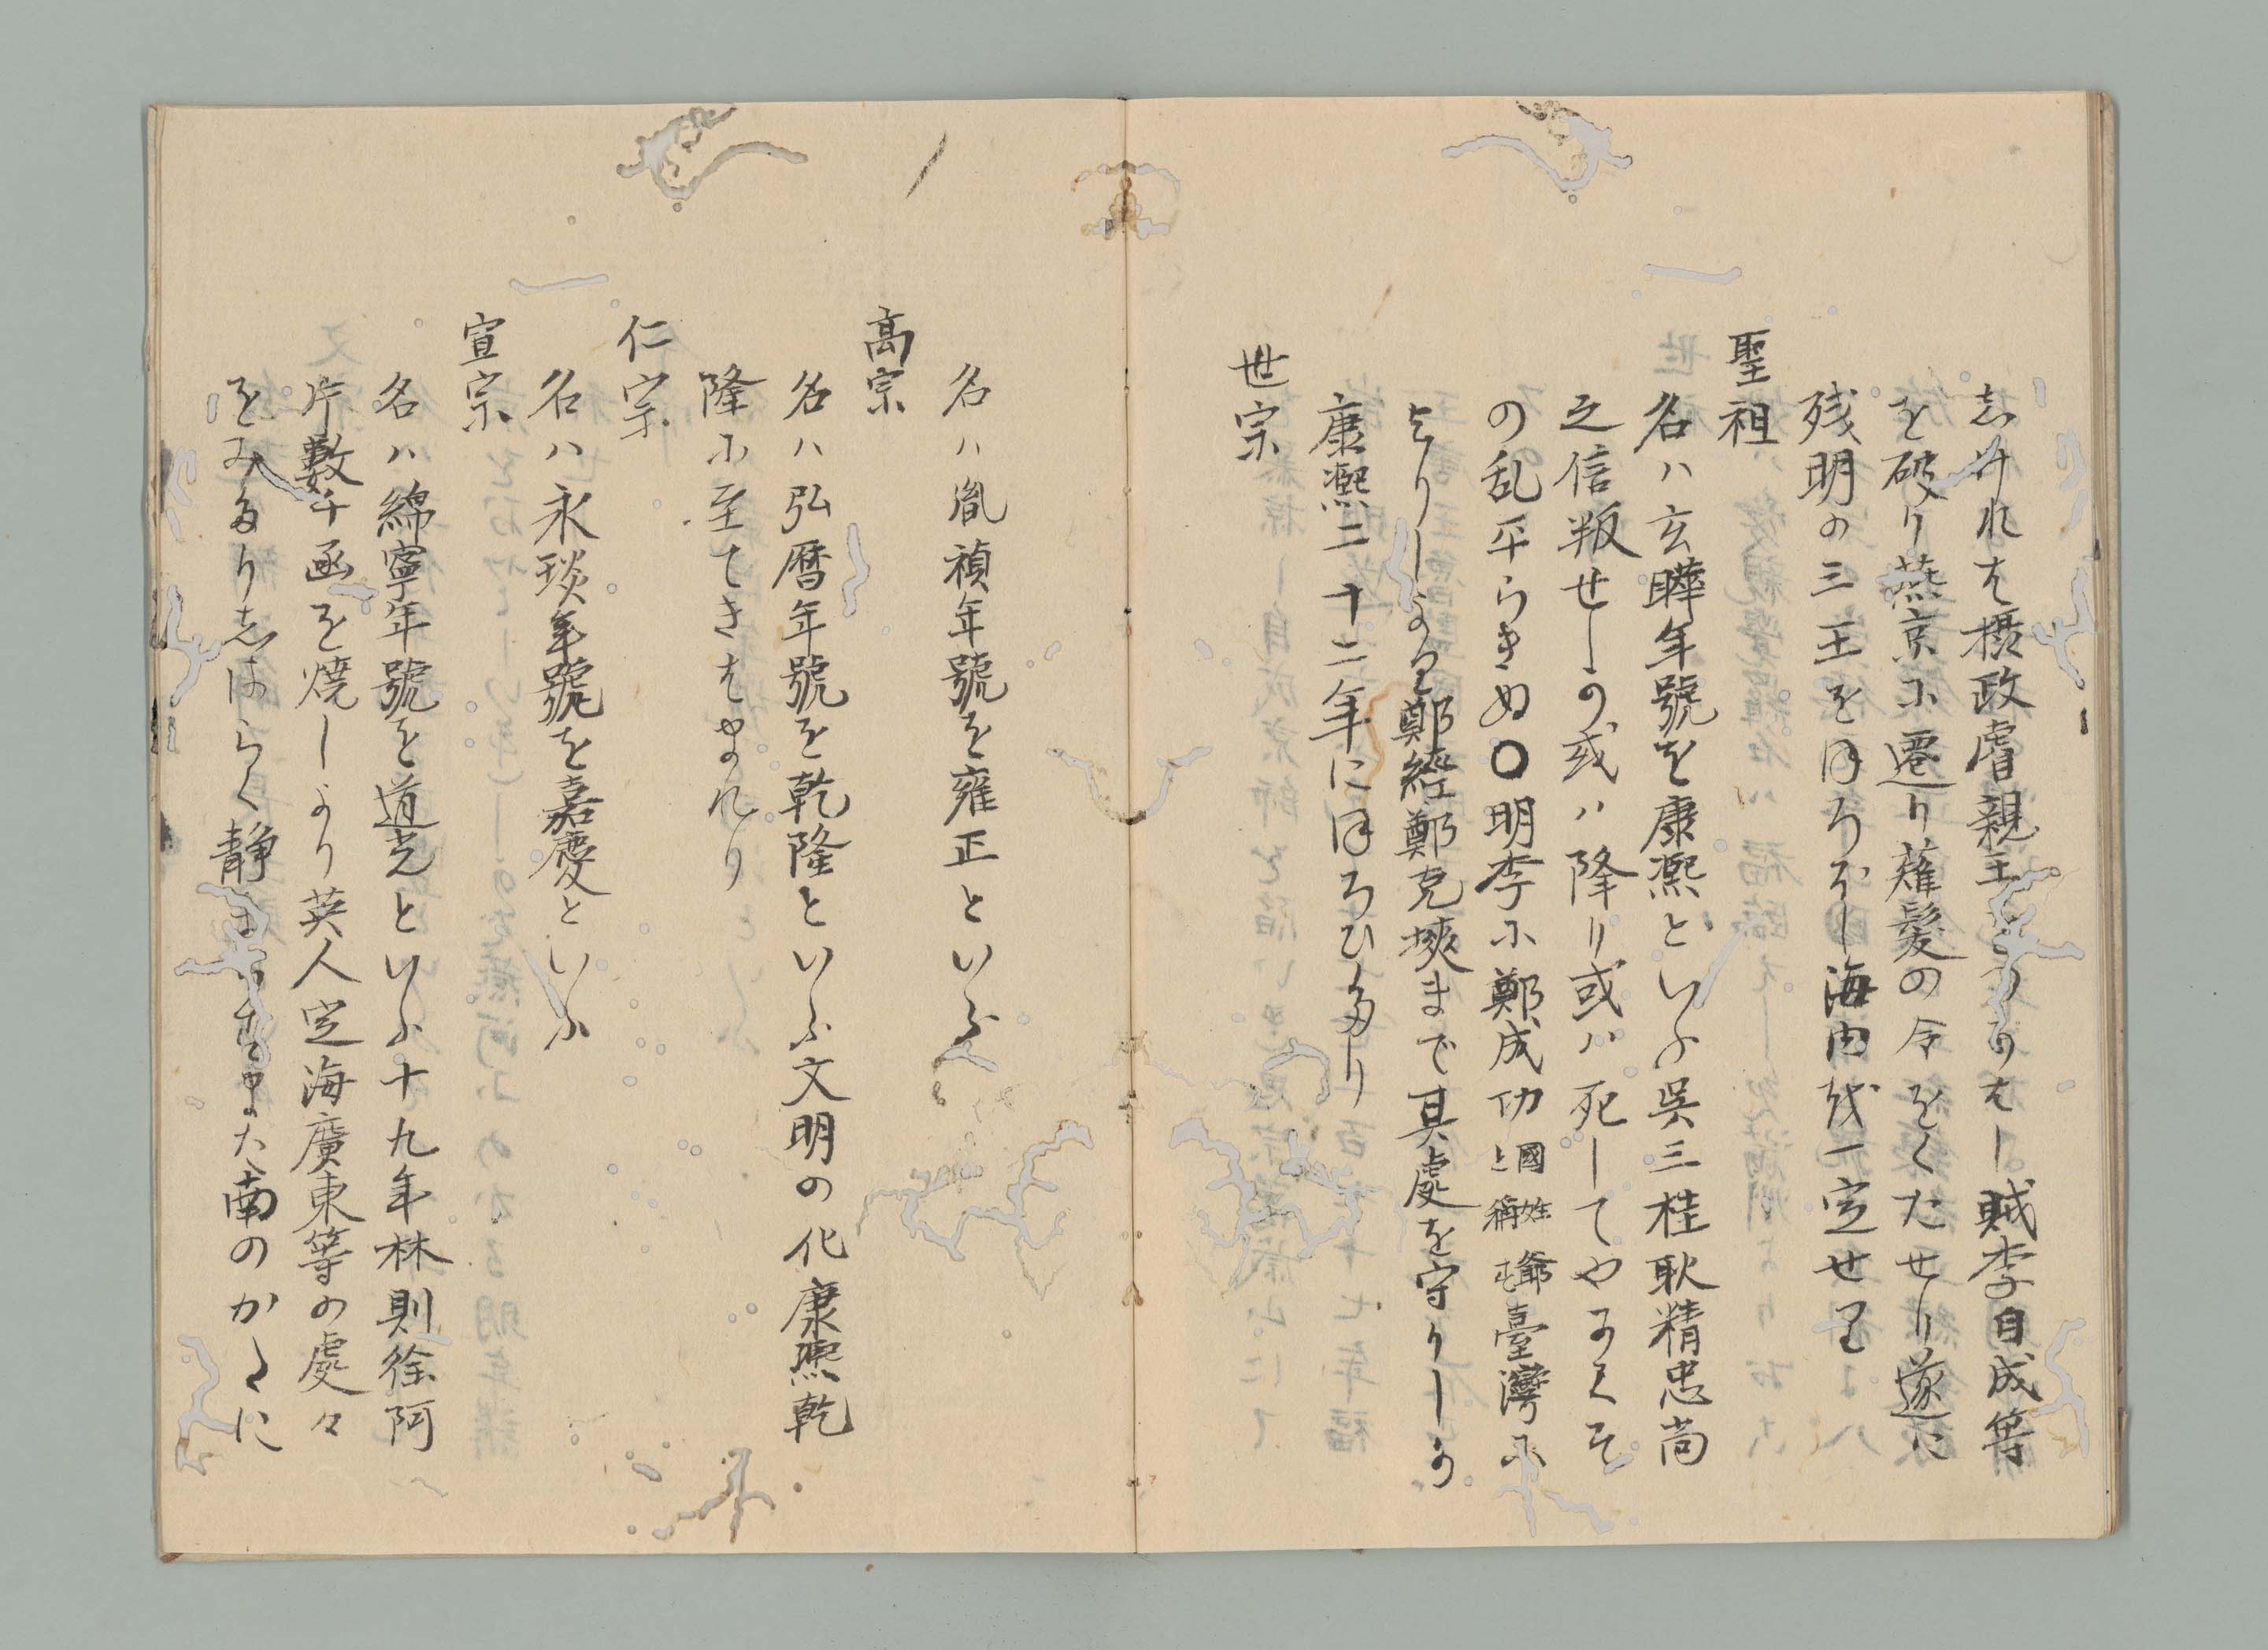 志かれは摂政睿親王とりはし賊李自成等
を破り燕京に遷り薙髪の令をくたせり遂に
残明の三王をほろほし海内後一定せり
聖祖
名ハ玄曄年號を康熙といふ呉三桂耿精忠尚
之信叛せしか或ハ降り或ハ死してやうてそ
の乱平らきぬ〇明季に鄭成功國姓爺と稱臺灣に
よりしより鄭經鄭克塽まで其處を守りしか
康熙二十二年にほろひたり
世宗
名ハ胤禎年號を雍正といふ
高宗
名ハ弘暦年號を乾隆といふ文明の化康熙乾
隆に至てきはまれり
仁宗
名ハ永琰年號を嘉慶といふ
宣宗
名ハ綿寧年號を道光といふ十九年林則徐阿
片數千函を焼しより英人定海廣東等の處々
をみたり志はらく静また南のかたに